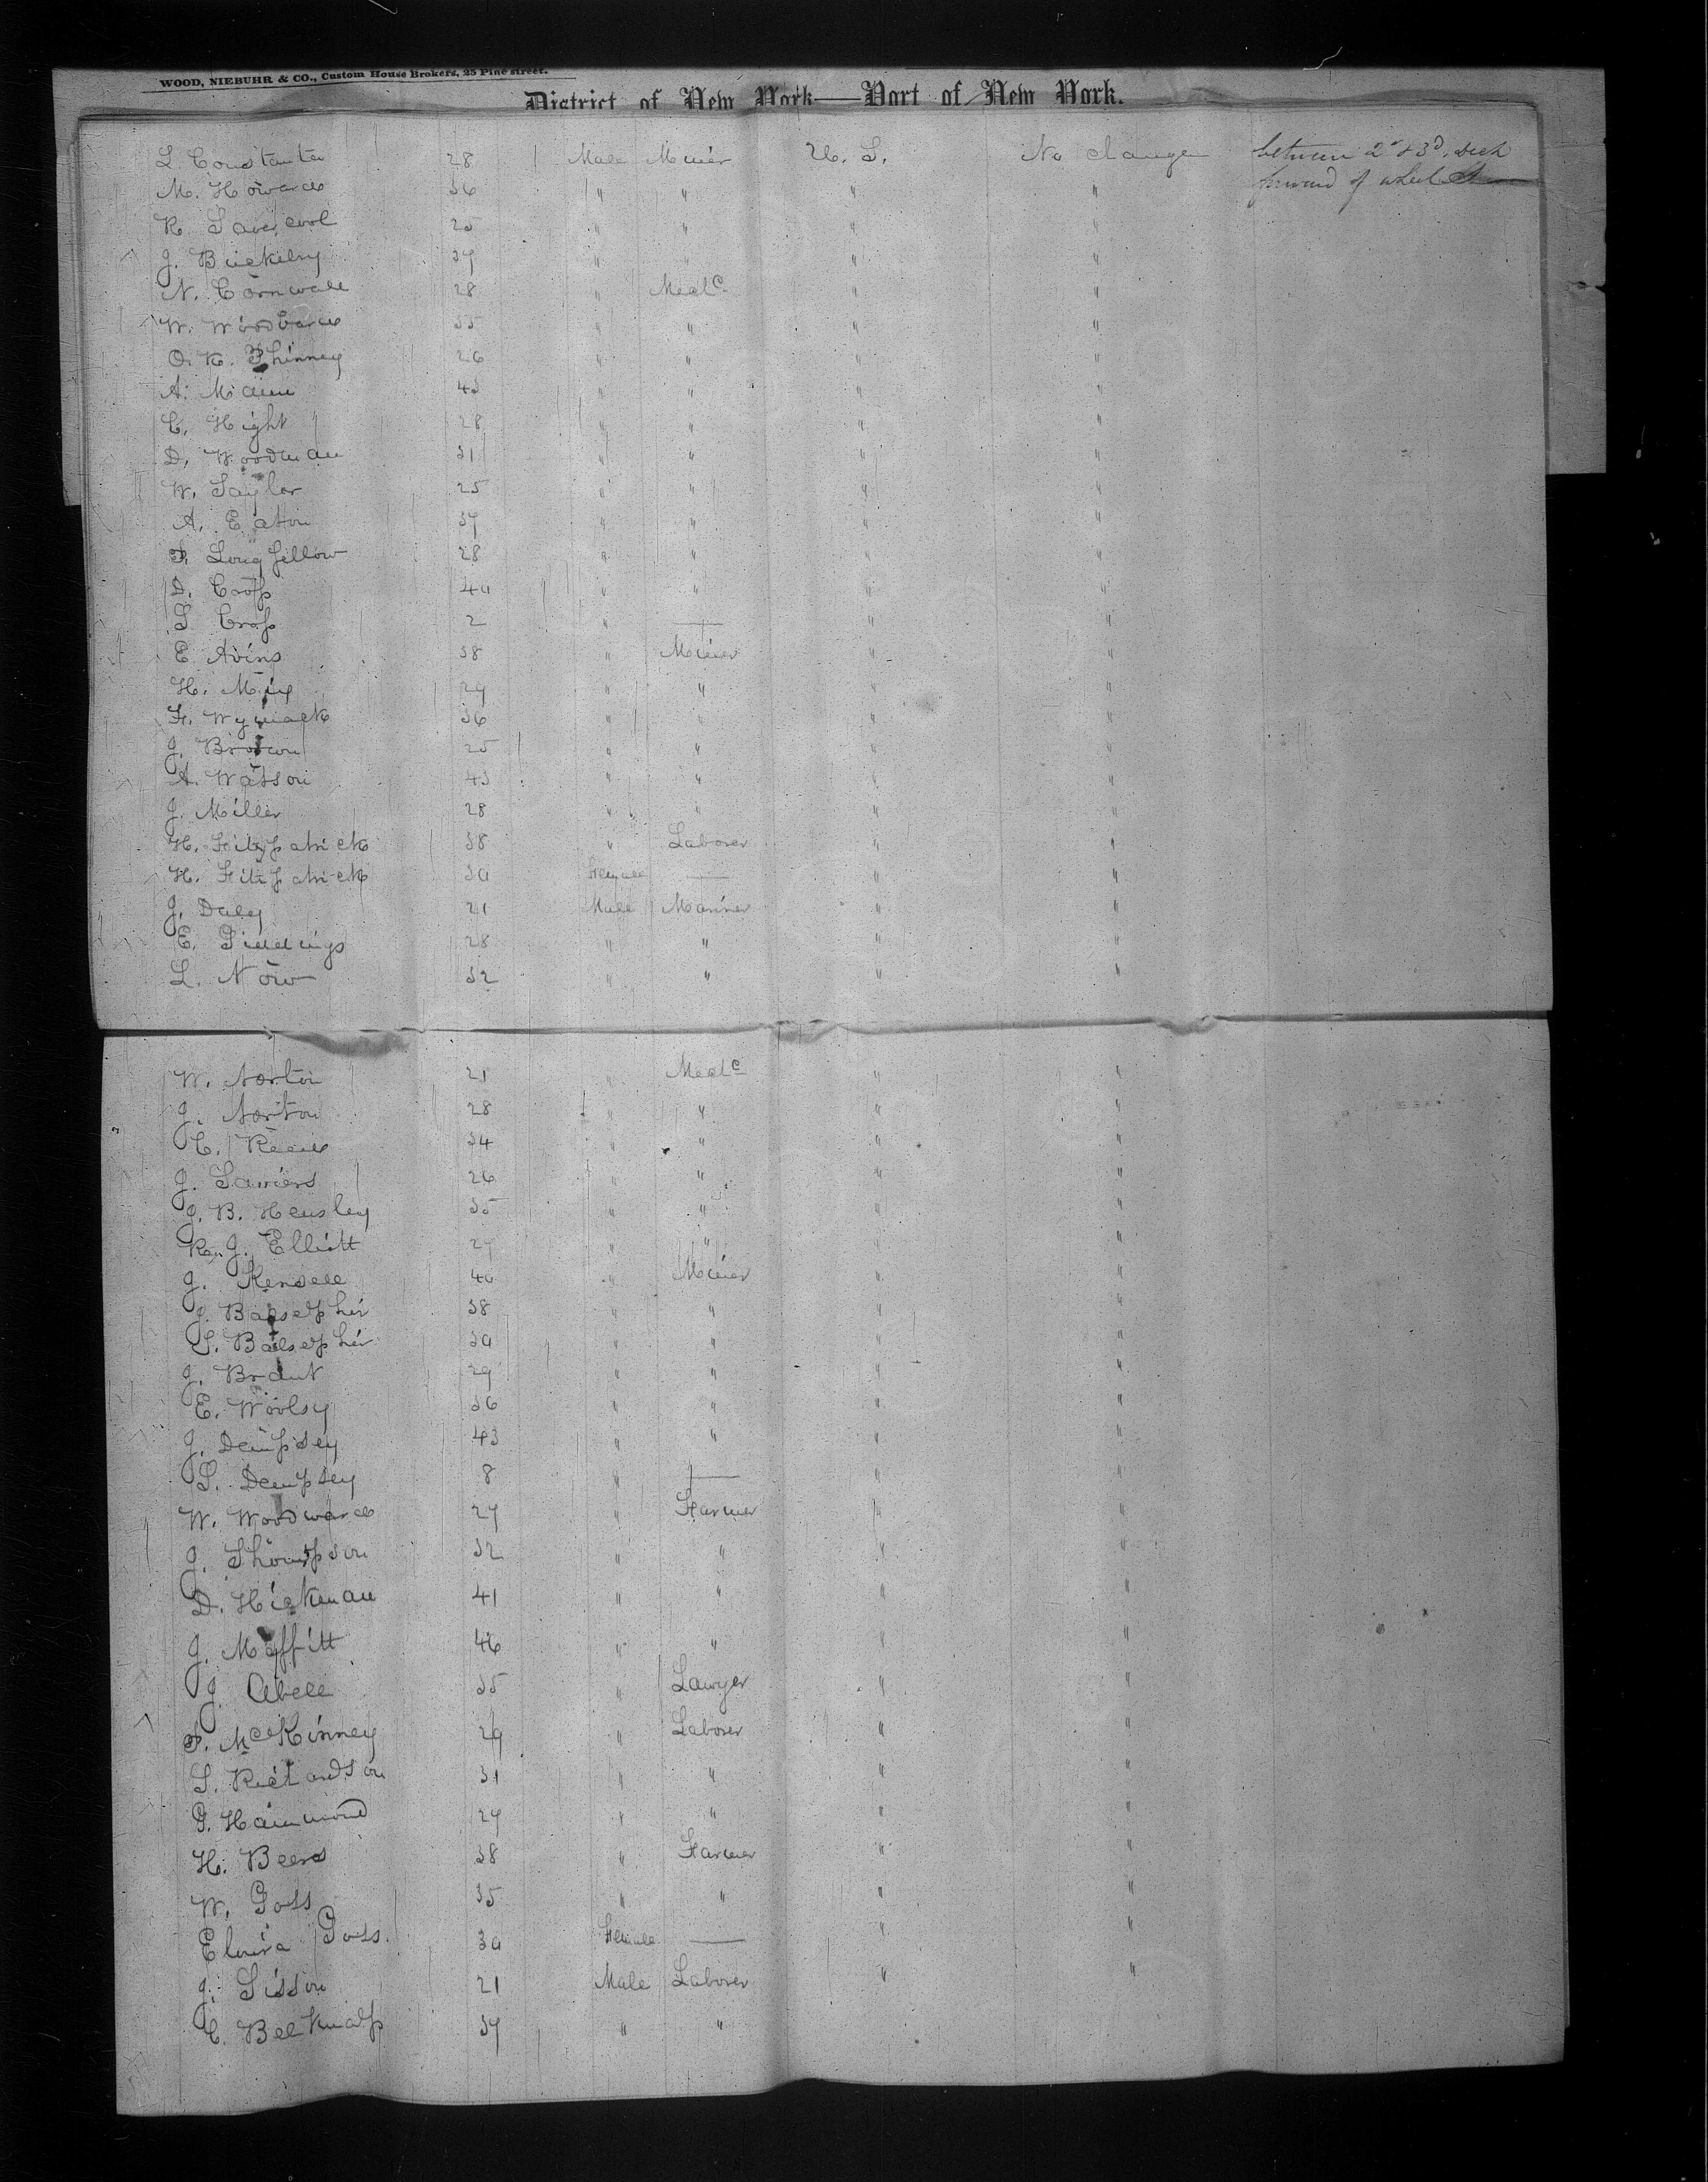 WOOD, NIEBUHR & CO., Custom House Brokers, 25 Pine street.
District of New York—Port of New York.
L Constanta 28 Male Miner U. S. No change between 2d & 3d deck
M. Howard 36 " " " " forward of wheel
R. Savercool 25 " " " "
J. Buckelny 37 " " " "
N. Cornwall 28 " Mechc " "
W. Woodward 35 " " " "
O. K. Phinney 26 " " " "
A. Mann 43 " " " "
C. Hight 28 " " " "
D. Woodman 31 " " " "
W. Taylor 25 " " " "
A. Eaton 37 " " " "
F. Longfellow 28 " " " "
D. Cross 40 " " " "
S. Cross 2 " — " "
E Avins 38 " Miner " "
H. Mix 29 " " " "
F. Wymack 36 " " " "
J. Brown 25 " " " "
A. Watson 43 " " " "
J. Miller 28 " " " "
H. Fitzpatrick 38 " Laborer " "
H. Fitzpatrick 30 Female — " "
J. Daley 21 Male Mariner " "
E. Giddings 28 " " " "
L. Now 32 " " " "
W. Norton 21 " Mechc " "
J. Norton 28 " " " "
C. Reed 34 " " " "
J. Sawiers 26 " " " "
J. B. Hensley 35 " " " "
R. J. Elliott 27 " " " "
J. Kensell 40 " Miner " "
J. Balsepher 38 " " " "
S. Balsepher 30 " " " "
J. Brant 29 " " " "
E. Woolsy 36 " " " "
J. Dempsey 43 " " " "
S. Dempsey 8 " — " "
W. Woodward 27 " Farmer " "
J. Thompson 32 " " " "
D. Hickman 41 " " " "
J. Moffitt 46 " " " "
J. Abell 35 " Lawyer " "
F. McKinney 29 " Laborer " "
S. Richardson 31 " " " "
G. Hammond 27 " " " "
H. Beers 38 " Farmer " "
W. Goss 35 " " " "
Elmira Goss. 30 Female — " "
J. Sisson 21 Male Laborer " "
C. Belknap 37 " "